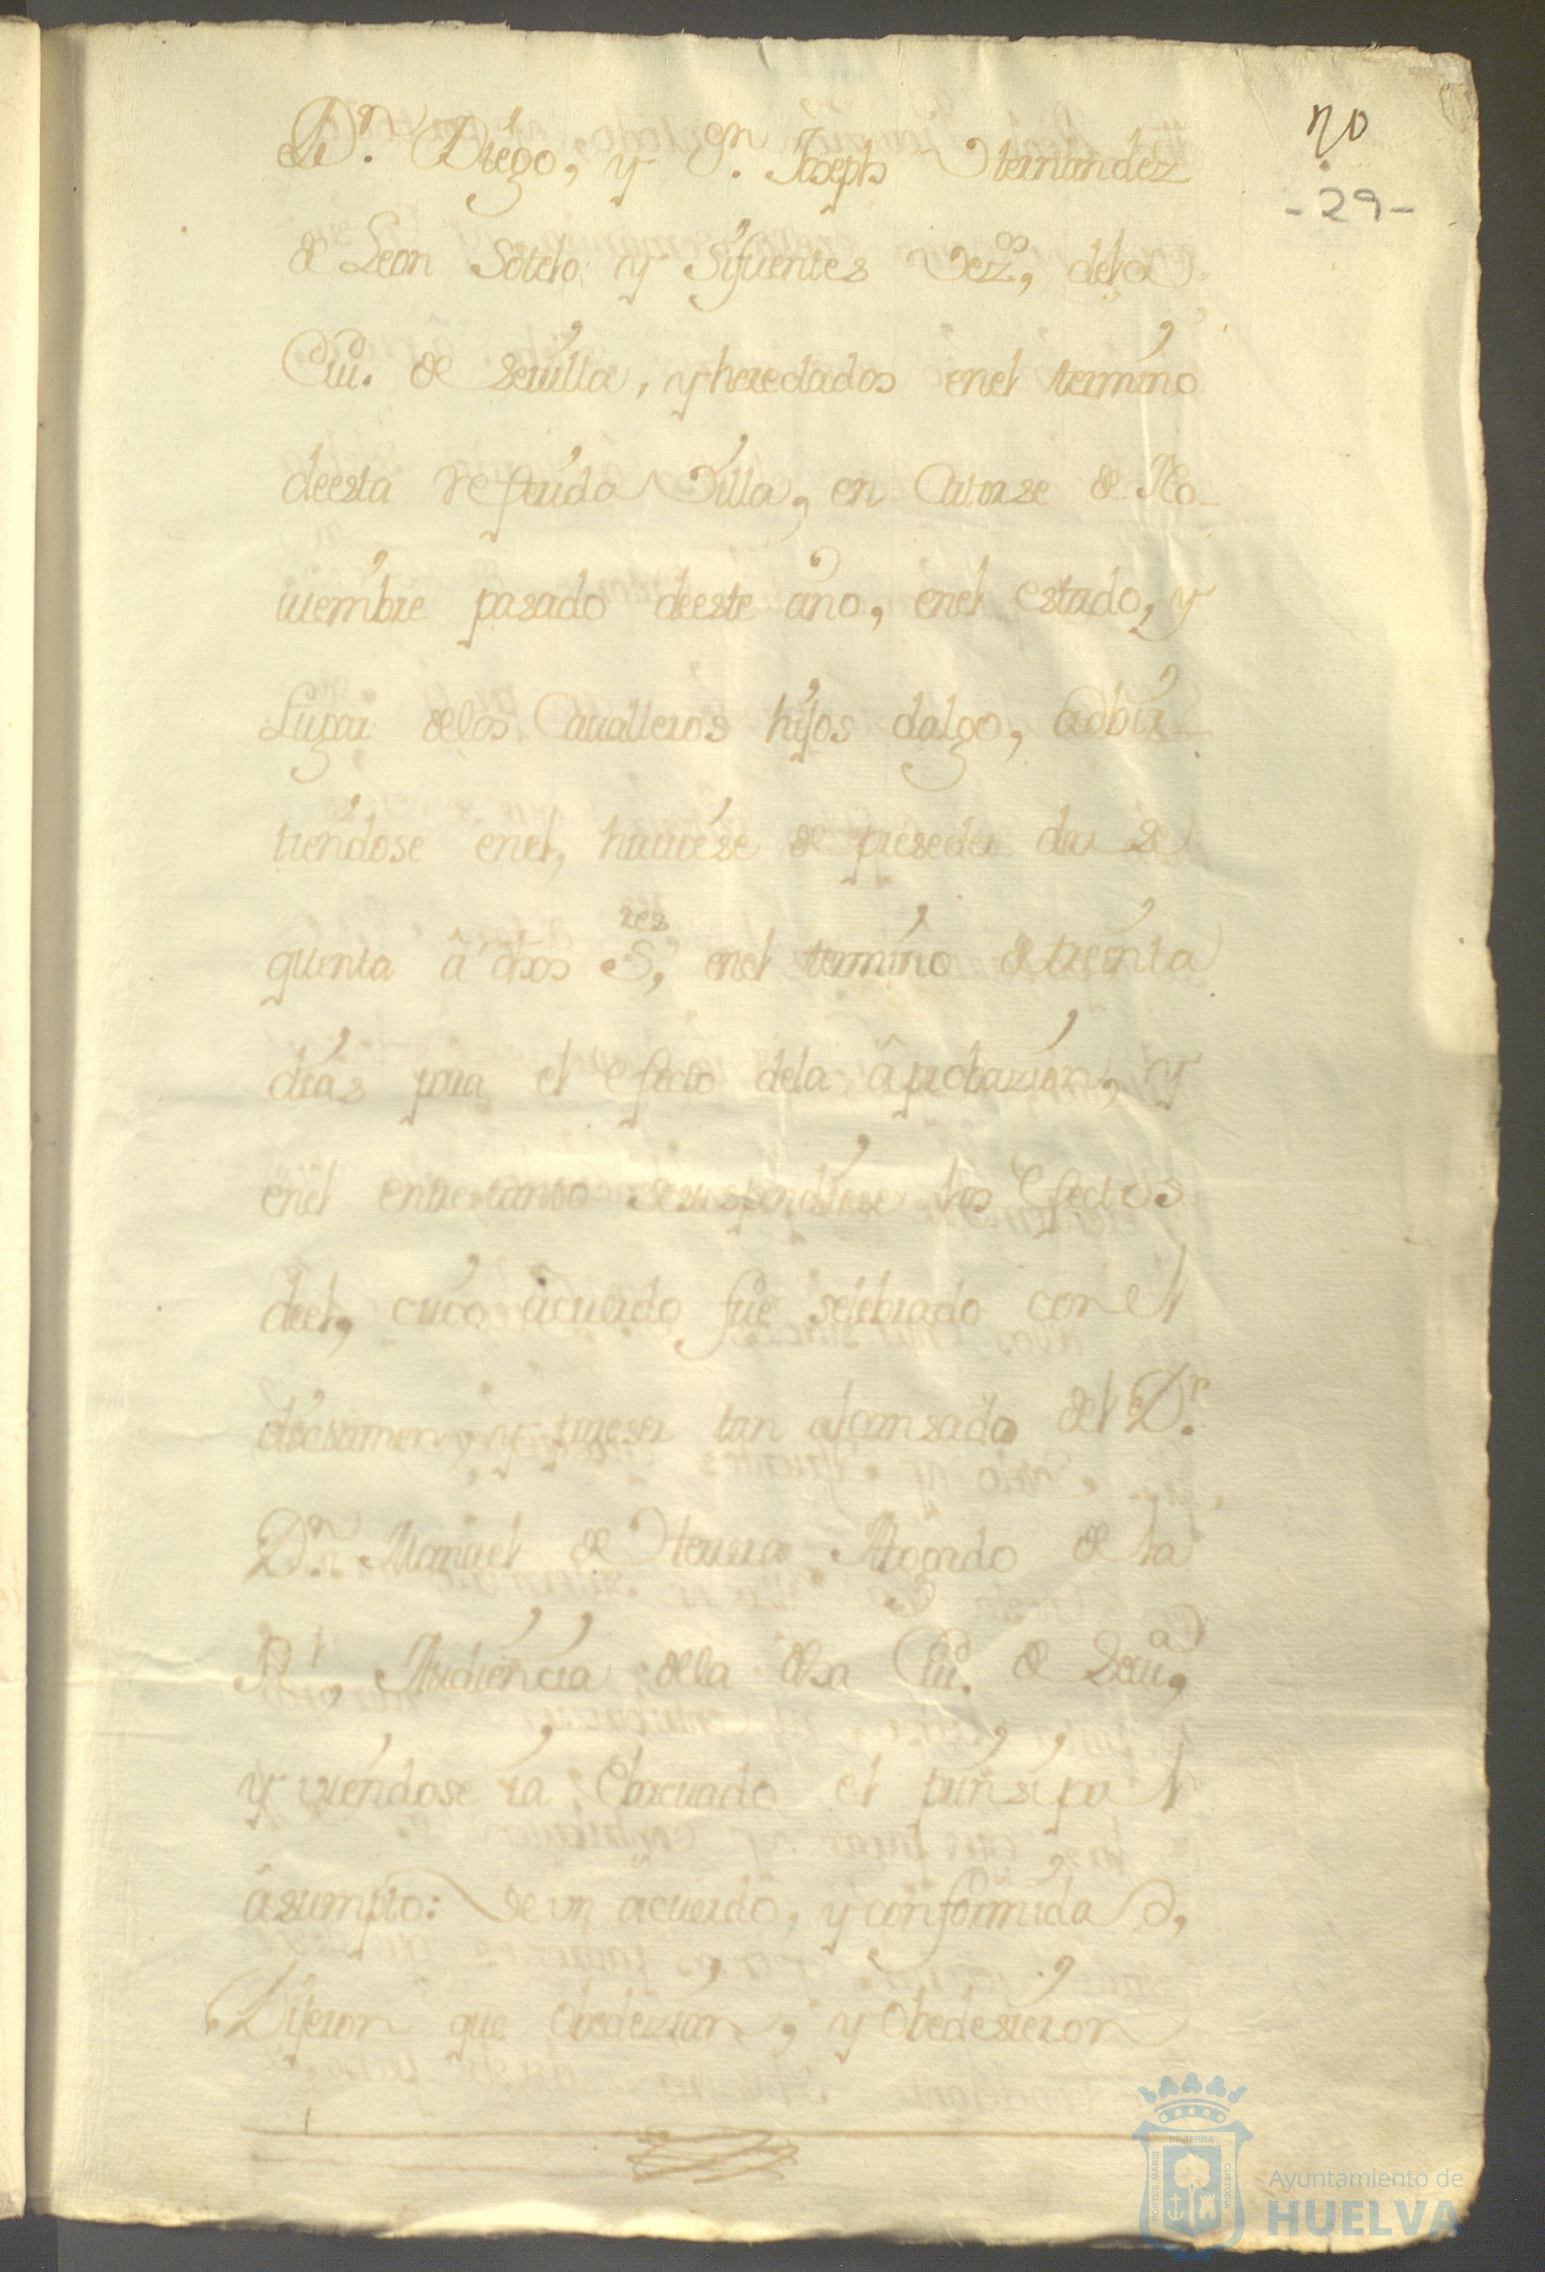 20
-29-
Dn. Diego, y Dn. Joseph Hernandez
de Leon Sotelo y Sifuentes Vezos, dela
Ciud. de Seuilla, y heredados enel termino
deesta referida Villa, en Catorse de No-
uiembre pasado deeste año, enel estado, y
Lugar delos Caualleros hijos dalgo, adbir-
tiendose enel, hauerse de preseder darse
quenta â dhos Sres, enel termino de treinta
dias para el efecto dela âprobazion, y
enel entretanto sesuspendiese los efectos
deel, cuio acuerdo fue selebrado con el
dictamen, y pareser tan alcansado del Dr.
Dn. Manuel de Herrera Abogado de la
Rl. Audiencia dela dha Ciud. de Seuа,
y viendose ia Obseruado el prinsipal
âsumpto: de vn acuerdo, y conformidad,
Dijeron que obedezian, y obedesieron
PORTUS MARIS
ET TERRÆ
CUSTODIA
Ayuntamiento de
HUELVA